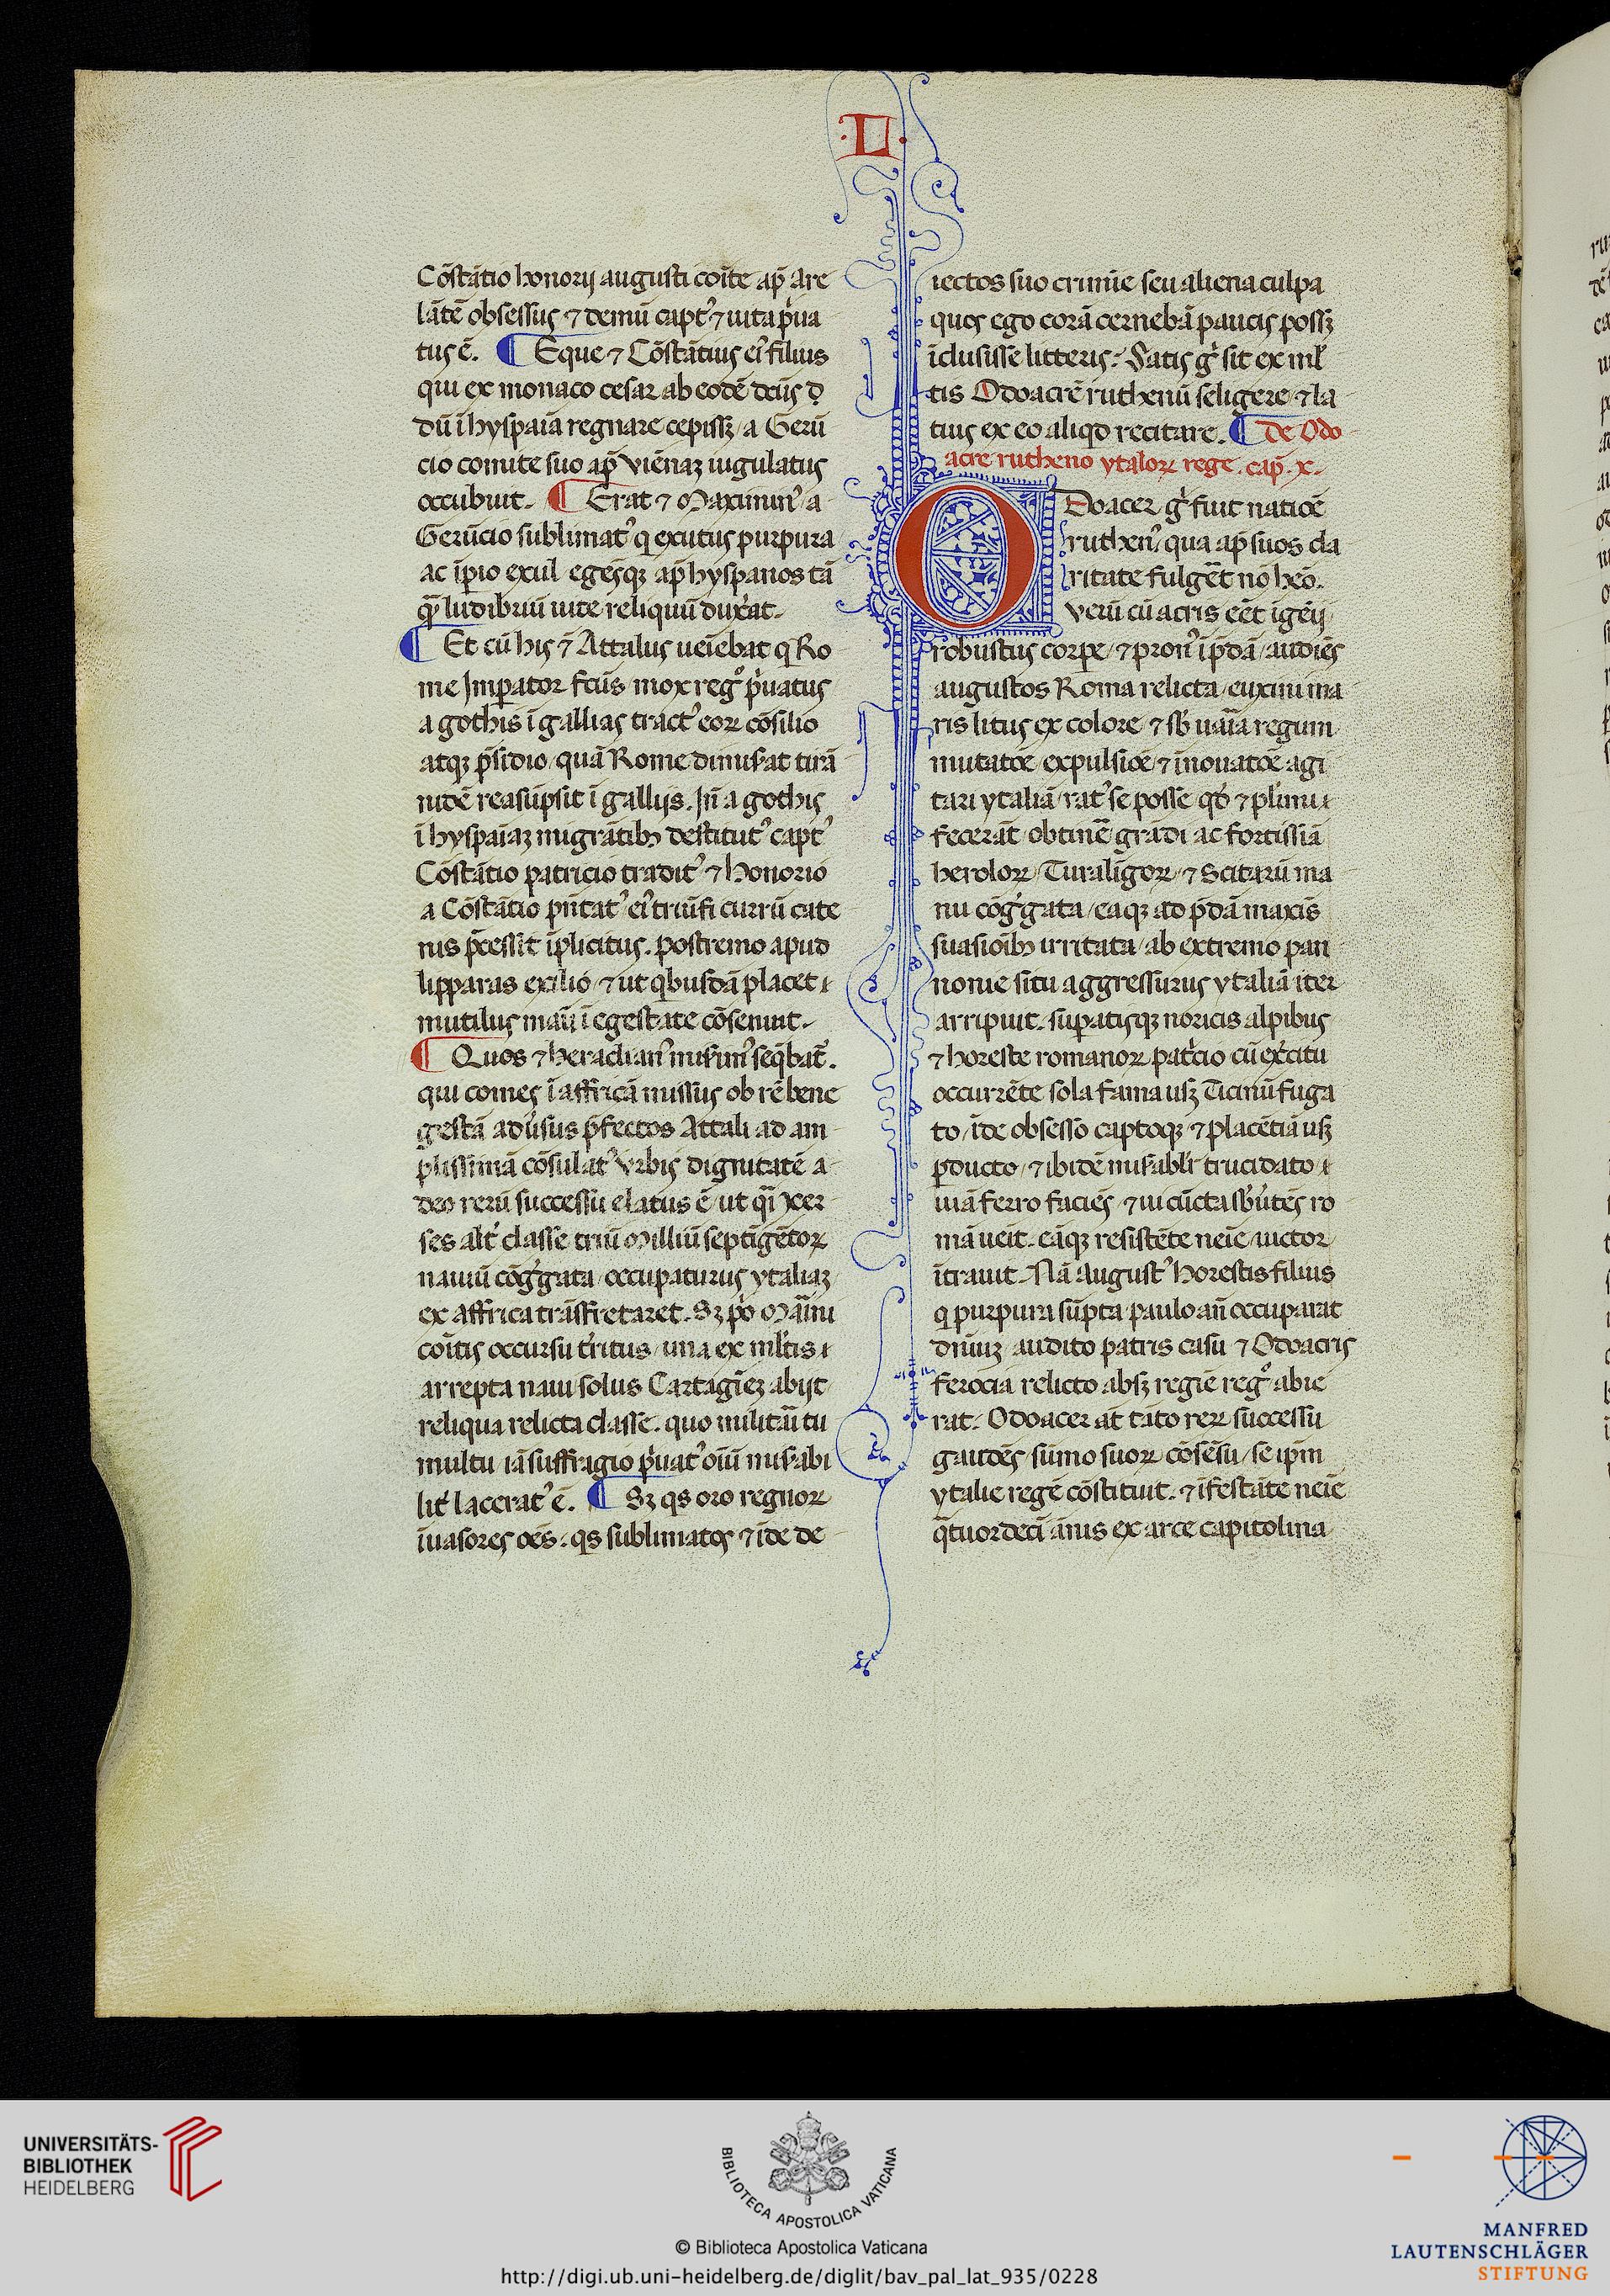 ·L·
Cōstātio honorij augusti coīte ap̄ are
lātē obsessus ⁊ demū capt᾿ ⁊ uita p̍ua
tus ē. ¶ Eque ⁊ Cōstātius ei᾿ filius
qui ex monaco cesar ab eodē
dū ī hyspaīa regnare cepissꝫ a Gerū
cio comite suo ap̄ viēnaꝫ iugulatus
occubuit. ¶ Erat ⁊ Maximin᾿ a
Gerūcio sublimat᾿ q̄ exutus purpura
ac īꝑio exul egēsqꝫ ap̄ hyspanos tā
qᷓꝫ ludibriū uite reliquū dux̄at.
¶ Et cū his ⁊ Attalus ueīebat q̍ Ro
me Imꝑator fcūs mox regº p̍uatus
a gothis ī gallias tract᾿ eoꝝ cōsilio
atqꝫ p̄sidio quā Rome dimis̄at tirā
nidē reasūpsit ī gallijs. In̄ a gothis
ī hyspaīaꝫ migrātibꝫ destitut᾿ capt᾿
Cōstātio patricio tradit᾿ ⁊ honorio
a Cōstātio p̄ntat᾿ ei᾿ triūfi currū cate
nis p̄cessit īplicitus. postremo apud
lipparas exilio ⁊ ut q̍busdā placet ⁊
mutilus maū ī egestate cōsenuit.
¶ Quos ⁊ heraclian᾿ mis̄im᾿ seq̄bat᾿.
qui comes ī affricā missus ob rē bene
gestā adūsus p̄fectos Attali ad am
plissimā cōsulat᾿ vrbis dignitatē a
deo rerū successu elatus ē ut q̄i xer
ses alt᾿ classe triū Milliū septīgētoꝝ
nauiū cōg̍gata occupaturus ytaliaꝫ
ex affrica trāsfretaret. Sꝫ p̍o Maīni
coītis occursu t̄ritus una ex ml̄tis ⁊
arrepta naui solus Cartagīeꝫ abijt
reliqua relicta classe. quo militū tu
multu iā suffragio p̍uat᾿ oīū mis̄abi
lit᾿ lacerat᾿ ē. ¶ Sꝫ qs oro regnoꝝ
īuasores oēs. qs sublimatos ⁊ īde de
iectos suo crimīe seu aliena culpa
quos ego corā cernebā paucis possꝫ
īclusisse litteris. Satis g̍ sit ex ml̄
tis Odoacrē ruthenū seligere ⁊ la
tius ex eo aliqd recitare. ¶ De Odo
acre rutheno ytaloꝝ rege. cap̄. x.
ODoacer g̍ fuit natiōe
ruthen᾿ qua ap̄ suos cla
ritate fulgēt nō heō.
Verū cū acris eēt īgeīj
robustus corpe ⁊ pron᾿ ī p̄dā audiēs
augustos Roma relicta euxini ma
ris litus ex colore ⁊ sb̄ uaīa regum
mutatōe expulsiōe ⁊ īnouatōe agi
tari ytaliā rat᾿ se posse qd̄ ⁊ pl̄imi ⁊
fecerāt obtinē grādi ac fortissīa
heroloꝝ Turalīgoꝝ ⁊ Scitarū ma
nu cōg̍gata eaqꝫ ad p̄dā maxīs
suasioībꝫ irritata ab extremo pan
nonie situ aggressurus ytaliā iter
arripuit. suꝑatisqꝫ noricis alpibus
⁊ horeste romanoꝝ pat᾿cio cū ex̄citu
occurrēte sola fama usqꝫ Ticinū fuga
to īde obsesso captoqꝫ ⁊ placētiā usqꝫ
ꝑducto ⁊ ibidē mis̄ablr̄ trucidato ⁊
uiā ferro faciēs ⁊ ui cūcta sb̄u᾿tēs ro
mā ueīt. eāqꝫ resistēte neīe uictor
ītrauit. Nā august᾿ horestis filius
q̍ purpura sūpta paulo an̄ occuparat
diuiꝫ audito patris casu ⁊ Odoacris
ferocia relicto absqꝫ regīe regº abie
rat. Odoacer at tāto reꝝ successu
gaudēs sūmo suoꝝ cōsēsu se ip̄m
ytalie regē cōstituit. ⁊ īfestāte neīe
q̄tuordecī ānis ex arce capitolina
UNIVERSITÄTS-
BIBLIOTHEK
HEIDELBERG
BIBLIOTECA APOSTOLICA VATICANA
© Biblioteca Apostolica Vaticana
http://digi.ub.uni-heidelberg.de/diglit/bav_pal_lat_935/0228
MANFRED
LAUTENSCHLÄGER
STIFTUNG